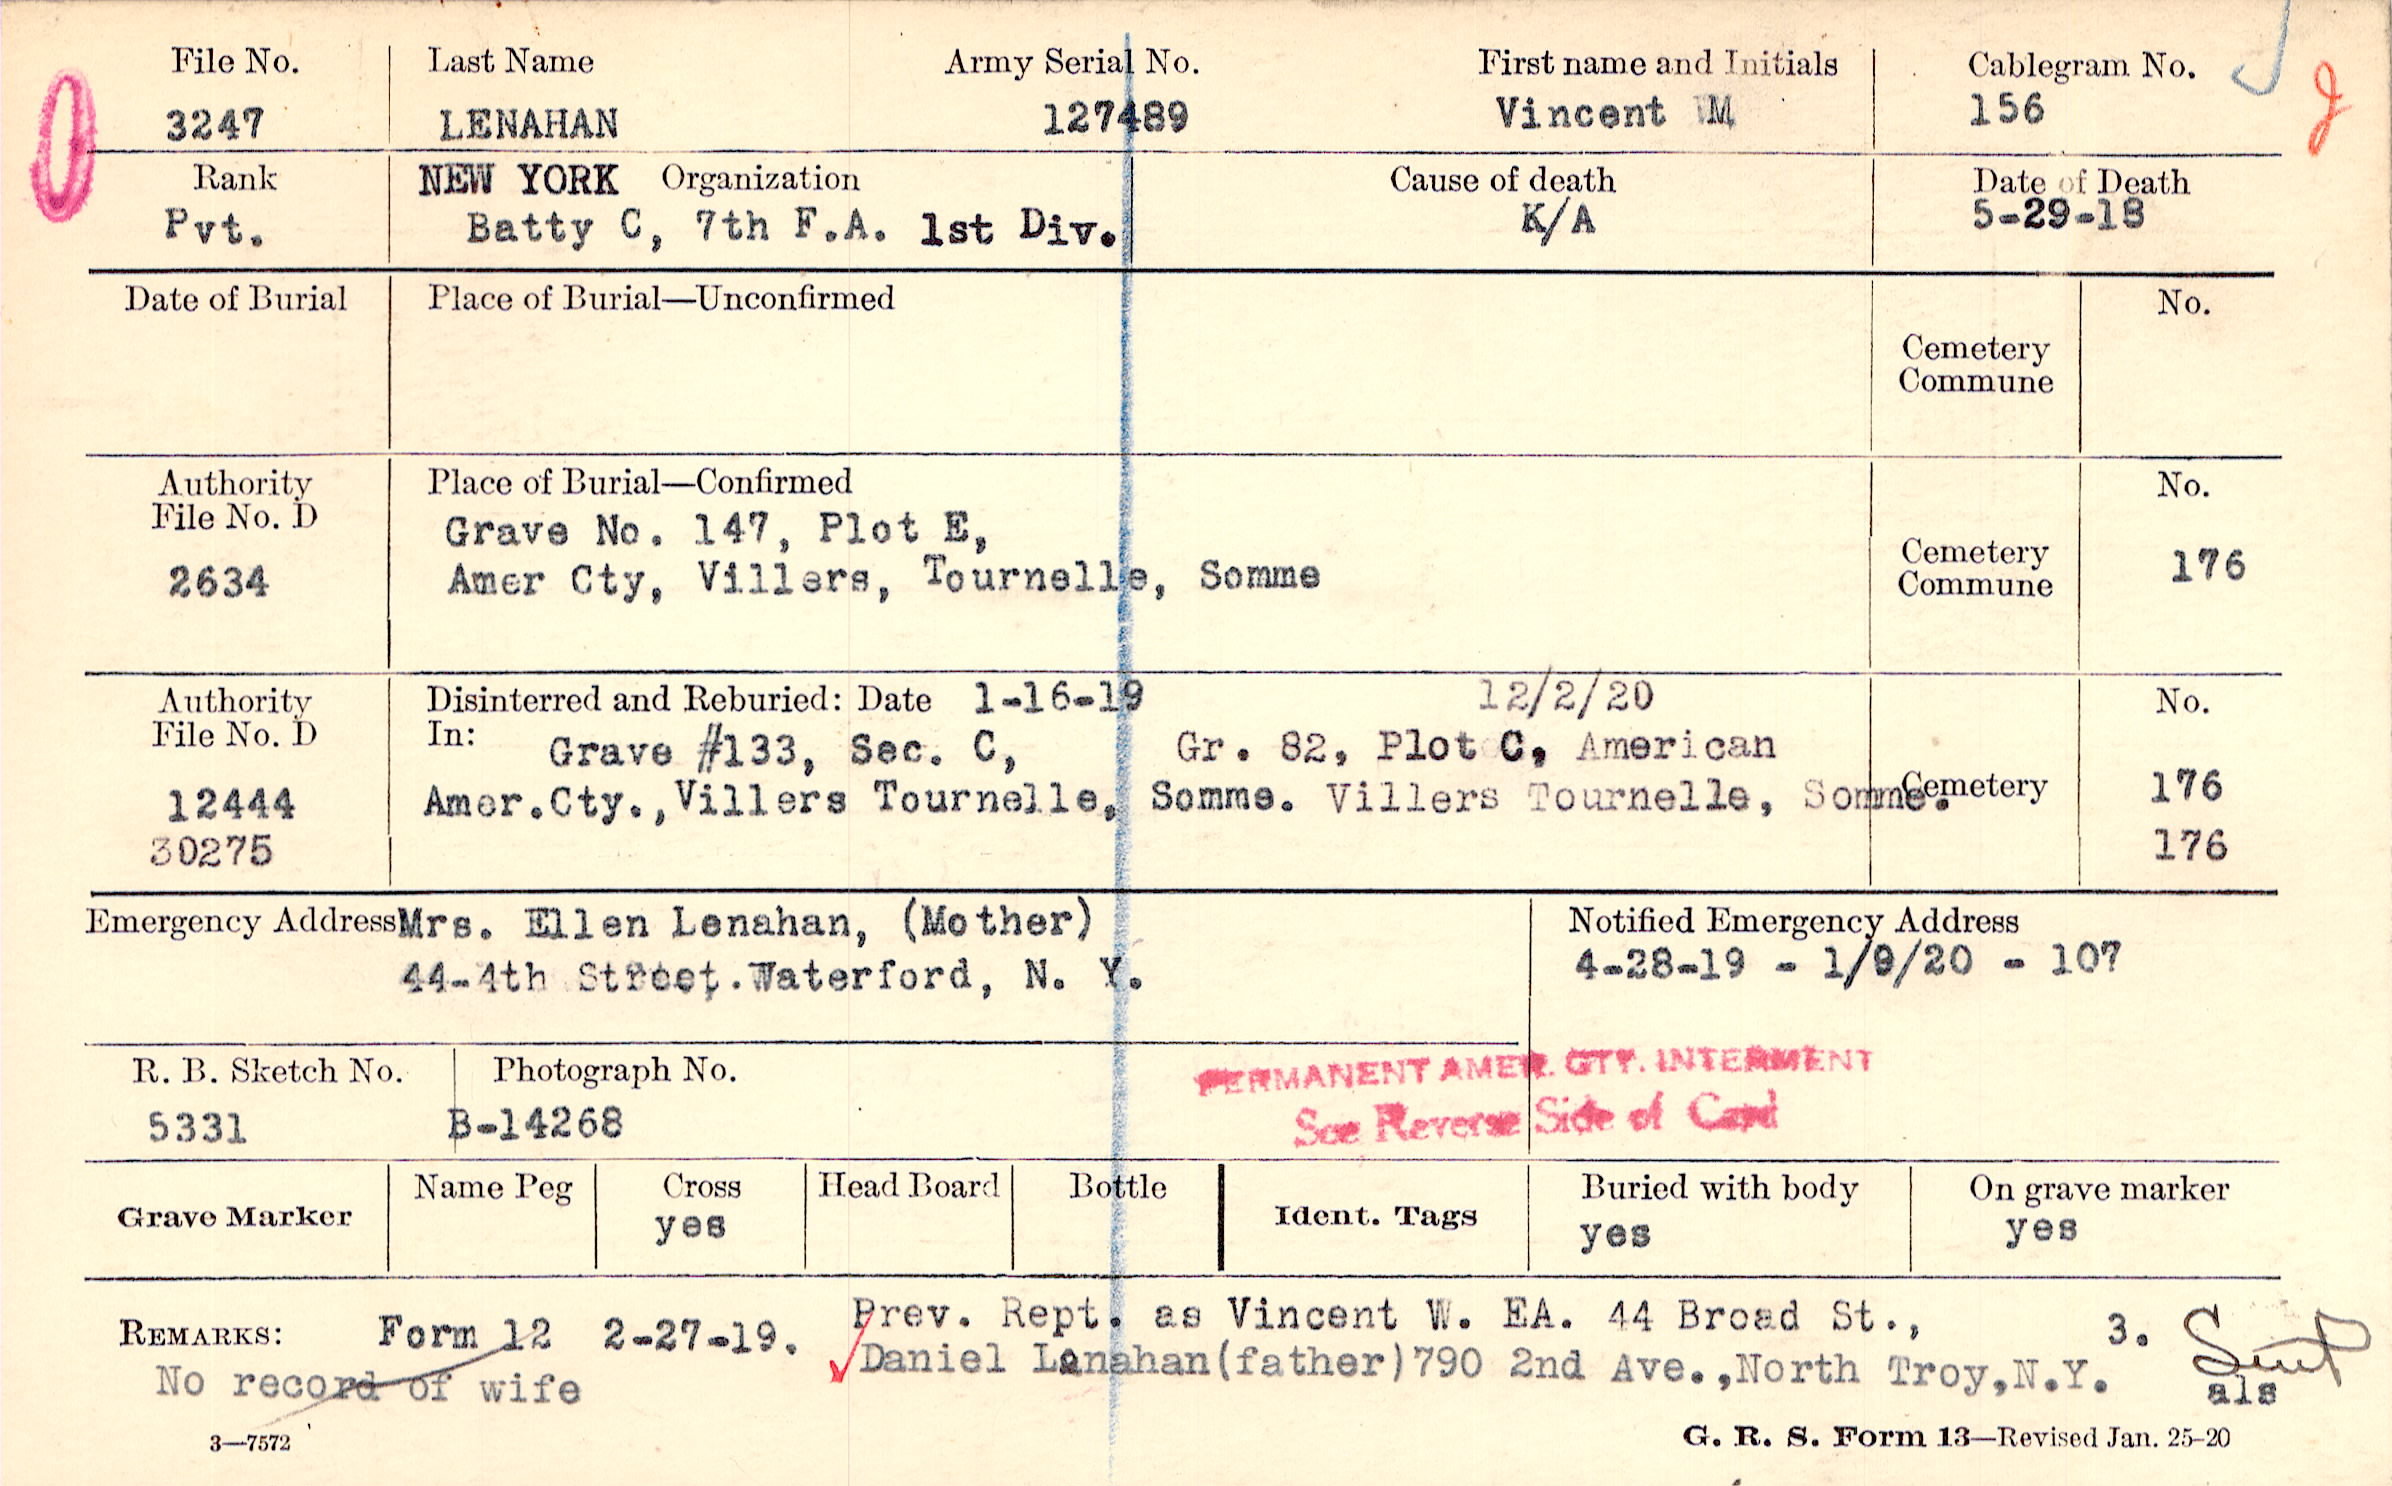 File No. Last Name Army Serial No. First name and Initials Cablegram No.
3247 LENAHAN 127489 Vincent M 156
Rank NEW YORK Organization Cause of death Date of Death
Pvt. Batty C, 7th F.A. 1st Div. K/A 5-29-18
Date of Burial Place of Burial—Unconfirmed No.
Cemetery
Commune
Authority Place of Burial—Confirmed No.
File No. D Grave No. 147, Plot E,
2634 Amer Cty, Villers, Tournelle, Somme Cemetery 176
Commune
Authority Disinterred and Reburied: Date 1-16-19 12/2/20 No.
File No. D In: Grave #133, Sec. C, Gr. 82, Plot C, American
12444 Amer.Cty., Villers Tournelle, Somme. Villers Tournelle, Somme. Cemetery 176
30275 176
Emergency Address Mrs. Ellen Lenahan, (Mother) Notified Emergency Address
44-4th Street. Waterford, N. Y. 4-28-19 - 1/9/20 - 107
R. B. Sketch No. Photograph No. PERMANENT AMER. CTY. INTERMENT
5331 B-14268 See Reverse Side of Card
Grave Marker Name Peg Cross Head Board Bottle Ident. Tags Buried with body On grave marker
yes yes yes
REMARKS: Form 12 2-27-19. Prev. Rept. as Vincent W. EA. 44 Broad St., 3.
No record of wife Daniel Lenahan(father)790 2nd Ave.,North Troy,N.Y. als
3—7572 G. R. S. Form 13—Revised Jan. 25-20